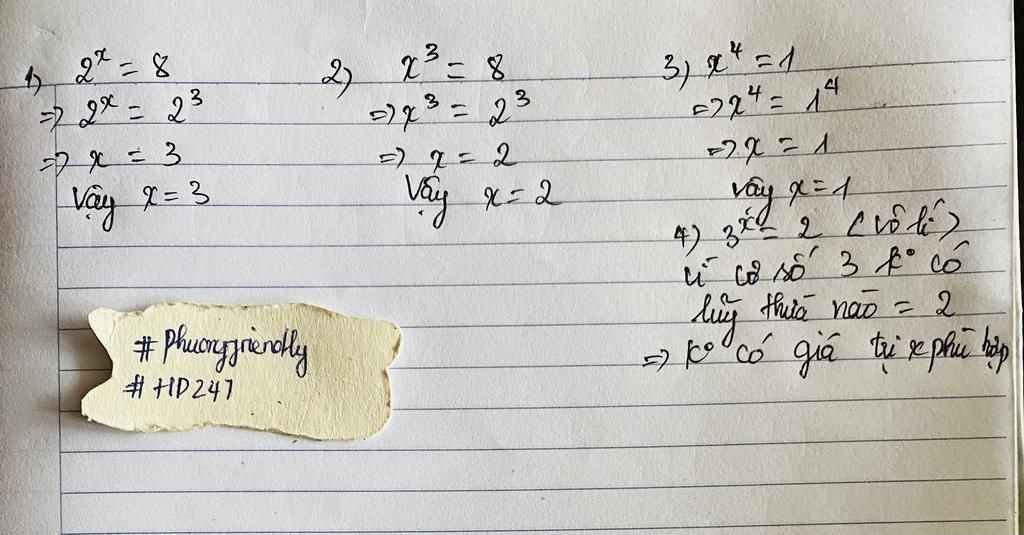 1) 2ˣ = 8
=> 2ˣ = 2³
=> x = 3
Vậy x = 3
2) x³ = 8
=> x³ = 2³
=> x = 2
Vậy x = 2
3) x⁴ = 1
=> x⁴ = 1⁴
=> x = 1
vậy x = 1
4) 3ˣ = 2 (vô lí)
vì cơ số 3 k° có
luỹ thừa nào = 2
=> k° có giá trị x phù hợp
# Phuongfriendly
# HD247